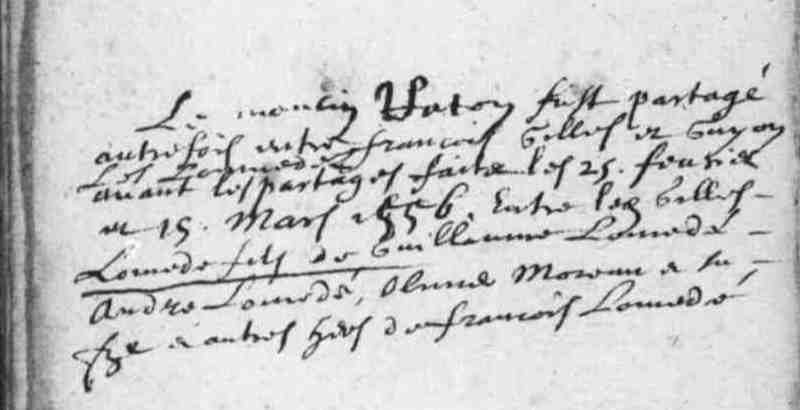 Le moulin Paton fust partagé
autrefois entre francois Gilles et Guyon
les Lomedés
avant les partages faits les 25. feurier
et 15. Mars 1556. Entre les Gilles
Lomede fils de Guillaume Lomedé
André Lomedé, Moreau a sa
fe et autres hers de francois Lomedé